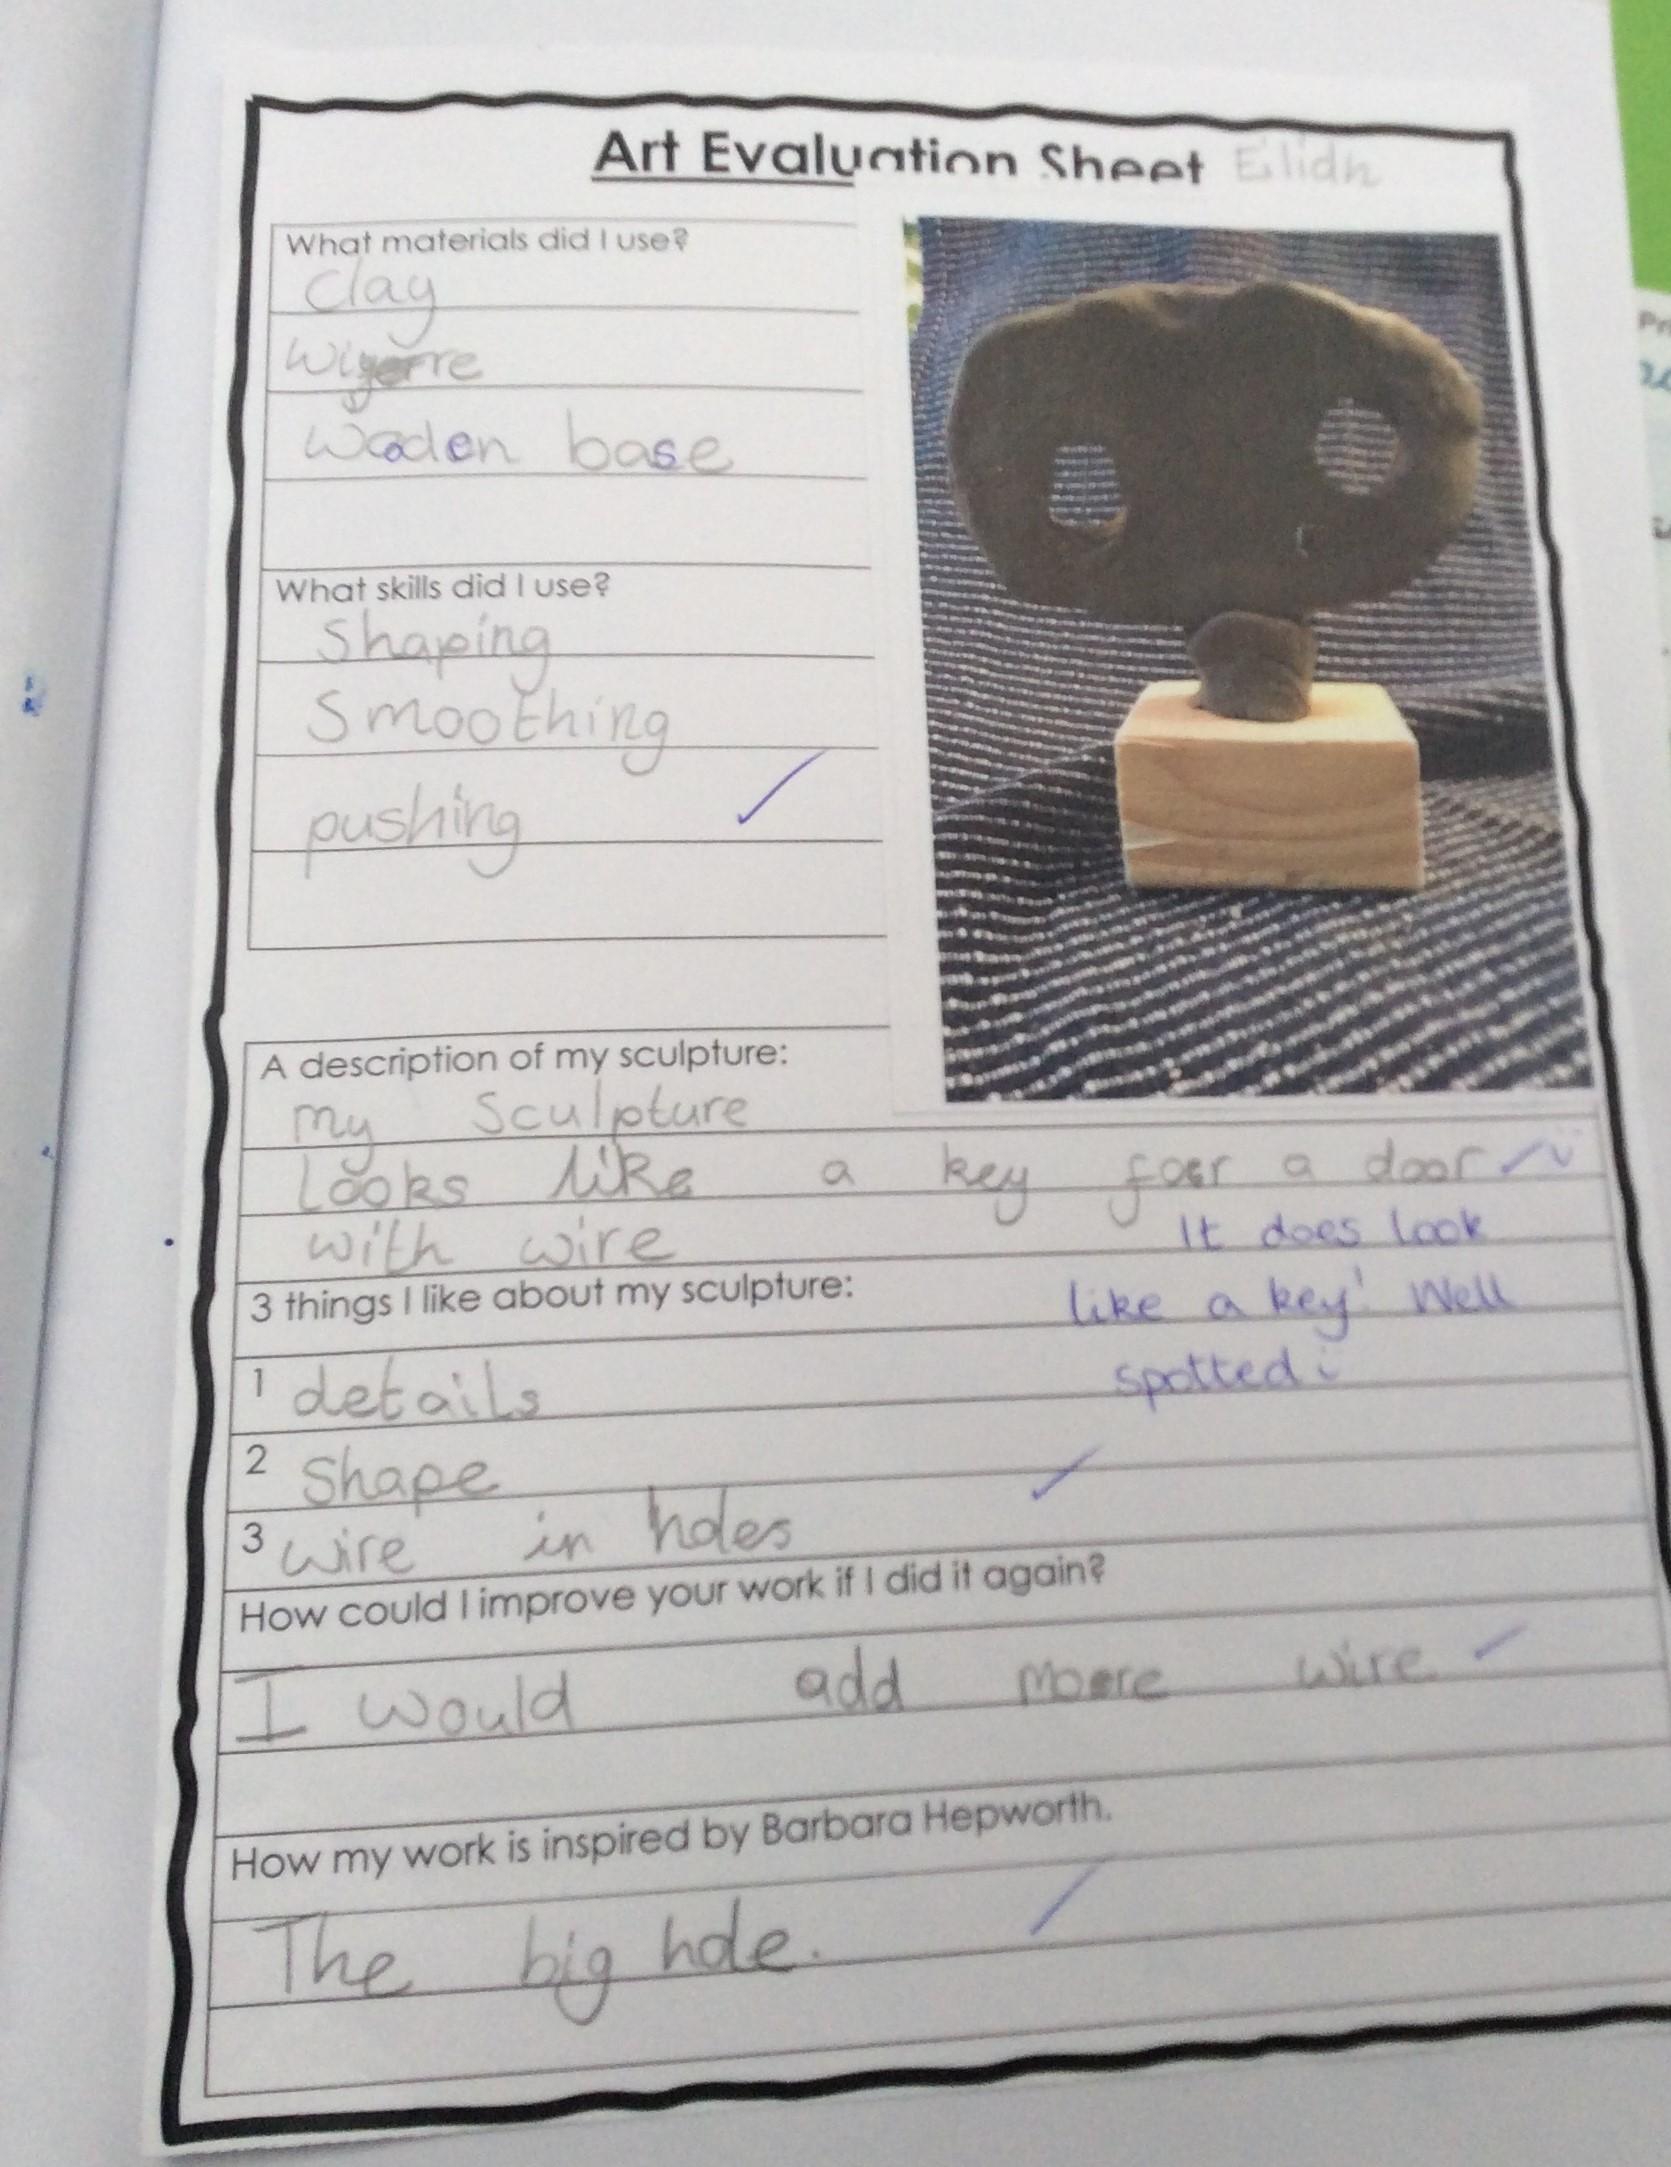 Art Evaluation Sheet Eilidh
What materials did I use?
clay
wire
wooden base
What skills did I use?
Shaping
Smoothing
pushing
A description of my sculpture:
my sculpture
Looks like a key for a door
with wire
It does look
like a key! Well
spotted
3 things I like about my sculpture:
1 details
2 Shape
3 wire in holes
How could I improve your work if I did it again?
I would add more wire
How my work is inspired by Barbara Hepworth.
The big hole.